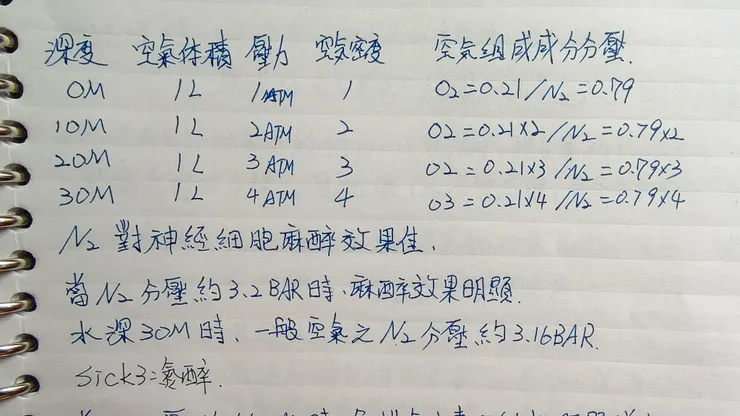 深度 空氣体積 壓力 空気密度 空気組成成分分壓.
0M 1L 1ATM 1 O2=0.21/N2=0.79
10M 1L 2ATM 2 O2=0.21x2/N2=0.79x2
20M 1L 3ATM 3 O2=0.21x3/N2=0.79x3
30M 1L 4ATM 4 O3=0.21x4/N2=0.79x4
N2 對神經細胞麻醉效果佳.
當N2分壓約3.2BAR時、麻醉效果明顯.
水深30M時、一般空氣之N2分壓約3.16BAR.
SICK3=氮醉.